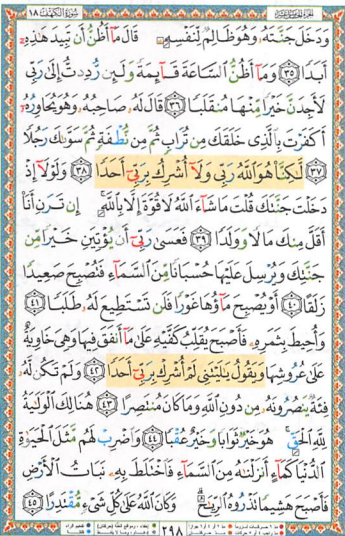 الجزء الخامس عشر سُورَةُ الكَهْفِ ١٨
وَدَخَلَ جَنَّتَهُۥ وَهُوَ ظَالِمٌ لِّنَفْسِهِۦ قَالَ مَآ أَظُنُّ أَن تَبِيدَ هَٰذِهِۦٓ
أَبَدًا ٣٥ وَمَآ أَظُنُّ ٱلسَّاعَةَ قَآئِمَةً وَلَئِن رُّدِدتُّ إِلَىٰ رَبِّي
لَأَجِدَنَّ خَيْرًا مِّنْهَا مُنقَلَبًا ٣٦ قَالَ لَهُۥ صَاحِبُهُۥ وَهُوَ يُحَاوِرُهُۥٓ
أَكَفَرْتَ بِٱلَّذِي خَلَقَكَ مِن تُرَابٍ ثُمَّ مِن نُّطْفَةٍ ثُمَّ سَوَّىٰكَ رَجُلًا
٣٧ لَّٰكِنَّا۠ هُوَ ٱللَّهُ رَبِّي وَلَآ أُشْرِكُ بِرَبِّيٓ أَحَدًا ٣٨ وَلَوْلَآ إِذْ
دَخَلْتَ جَنَّتَكَ قُلْتَ مَا شَآءَ ٱللَّهُ لَا قُوَّةَ إِلَّا بِٱللَّهِ إِن تَرَنِ أَنَا۠
أَقَلَّ مِنكَ مَالًا وَوَلَدًا ٣٩ فَعَسَىٰ رَبِّيٓ أَن يُؤْتِيَنِ خَيْرًا مِّن
جَنَّتِكَ وَيُرْسِلَ عَلَيْهَا حُسْبَانًا مِّنَ ٱلسَّمَآءِ فَتُصْبِحَ صَعِيدًا
زَلَقًا ٤٠ أَوْ يُصْبِحَ مَآؤُهَا غَوْرًا فَلَن تَسْتَطِيعَ لَهُۥ طَلَبًا ٤١
وَأُحِيطَ بِثَمَرِهِۦ فَأَصْبَحَ يُقَلِّبُ كَفَّيْهِ عَلَىٰ مَآ أَنفَقَ فِيهَا وَهِيَ خَاوِيَةٌ
عَلَىٰ عُرُوشِهَا وَيَقُولُ يَٰلَيْتَنِي لَمْ أُشْرِكْ بِرَبِّيٓ أَحَدًا ٤٢ وَلَمْ تَكُن لَّهُۥ
فِئَةٌ يَنصُرُونَهُۥ مِن دُونِ ٱللَّهِ وَمَا كَانَ مُنتَصِرًا ٤٣ هُنَالِكَ ٱلْوَلَٰيَةُ
لِلَّهِ ٱلْحَقِّ هُوَ خَيْرٌ ثَوَابًا وَخَيْرٌ عُقْبًا ٤٤ وَٱضْرِبْ لَهُم مَّثَلَ ٱلْحَيَوٰةِ
ٱلدُّنْيَا كَمَآءٍ أَنزَلْنَٰهُ مِنَ ٱلسَّمَآءِ فَٱخْتَلَطَ بِهِۦ نَبَاتُ ٱلْأَرْضِ
فَأَصْبَحَ هَشِيمًا تَذْرُوهُ ٱلرِّيَٰحُ وَكَانَ ٱللَّهُ عَلَىٰ كُلِّ شَيْءٍ مُّقْتَدِرًا ٤٥
٢٩٨